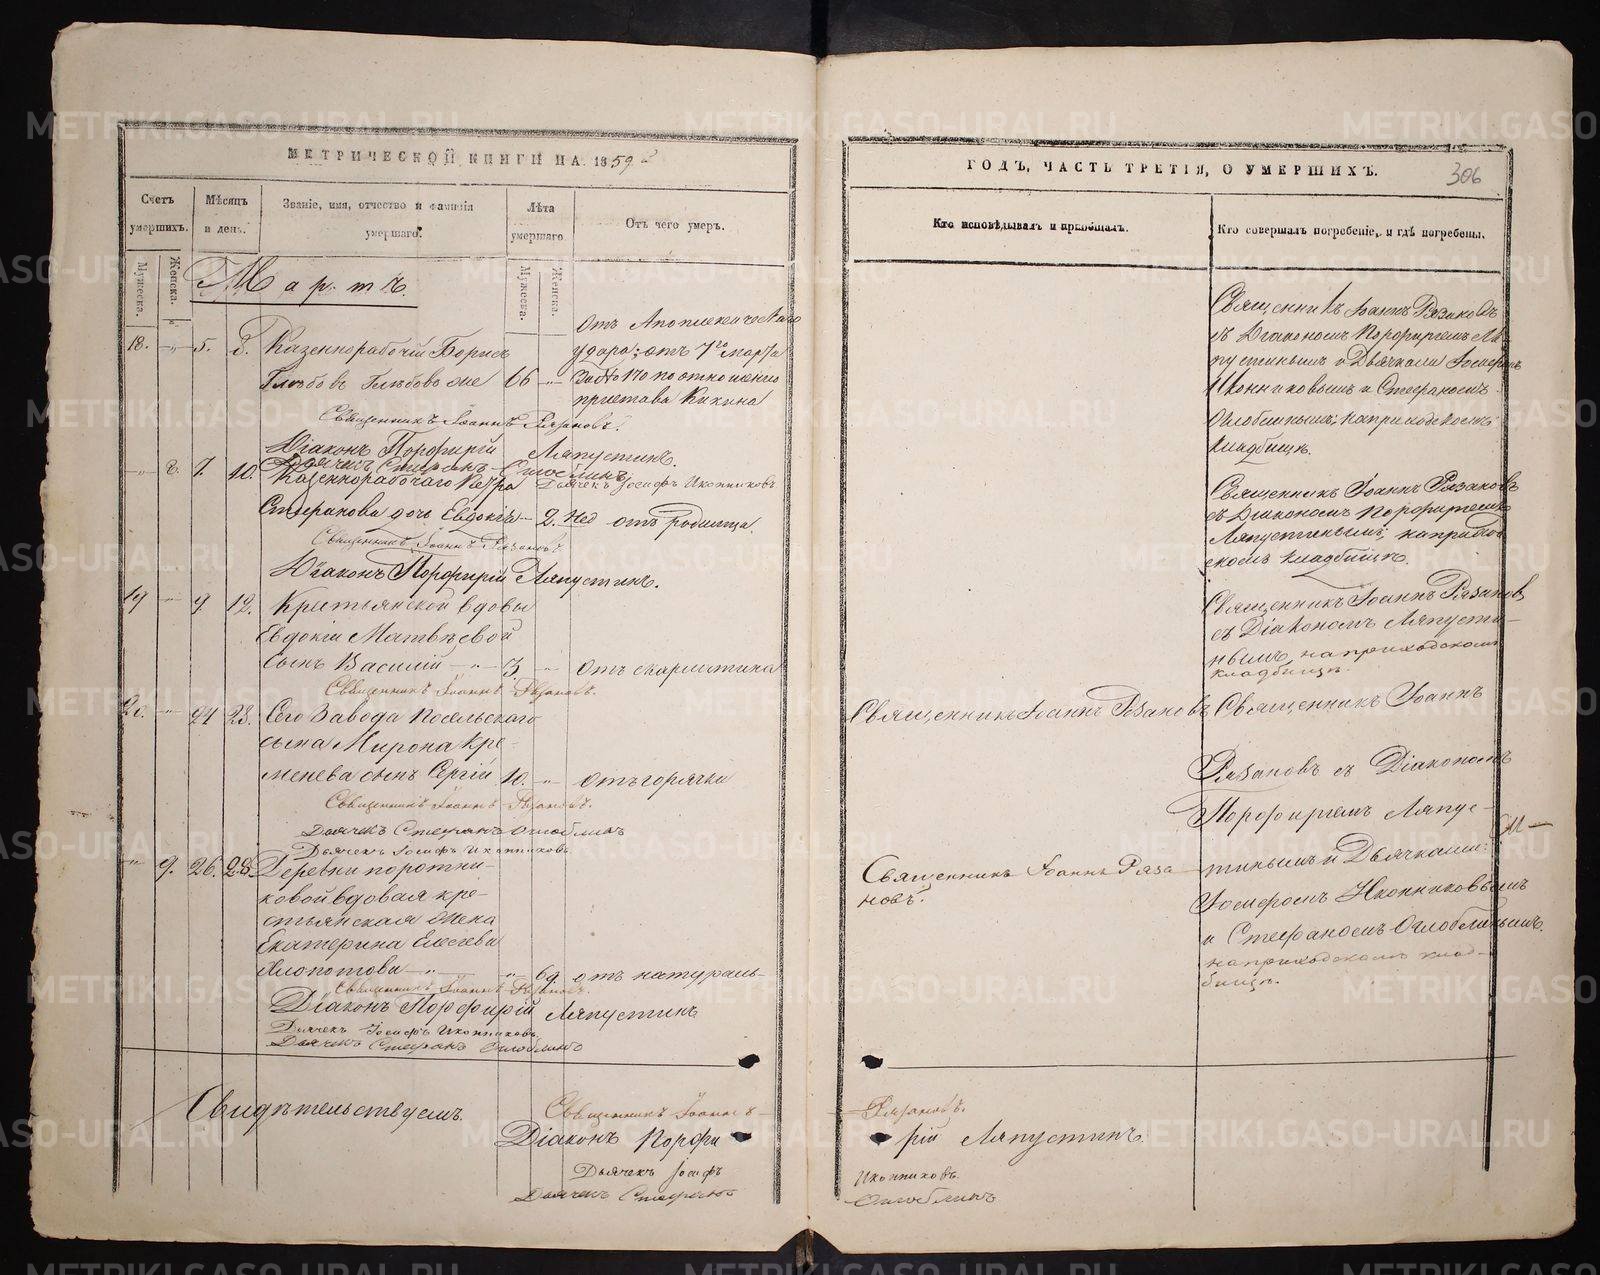 МЕТРИЧЕСКОЙ КНИГИ НА 1859
Счетъ умершихъ.
Мѣсяцъ и день.
Званіе, имя, отчество и фамилія умершаго.
Лѣта умершаго
Отъ чего умеръ.
Мужеска.
Женска.
Мужеска.
Женска.
Мартъ.
18. „ 5. 8. Казеннорабочій Борисъ
Глѣбовъ Глѣбовъ же 66 „
Отъ Апоплексическаго
удара; отъ 7го марта
за № 170 по отношенію
пристава Кикина
Священникъ Іоаннъ Рязановъ.
Діаконъ Порфирій Ляпустинъ.
Дьячекъ Стефанъ Оглоблинъ
Дьячекъ Іосифъ Иконниковъ
„ 8. 7. 10. Казеннорабочаго Петра
Стефанова дочь Евдокія 2. нед отъ родимца
Священникъ Іоаннъ Рязановъ
Діаконъ Порфирій Ляпустинъ.
19 „ 9 12. Крестьянской вдовы
Евдокіи Матвѣевой
сынъ Василій „ 3 „ отъ скарлатина
Священникъ Іоаннъ Рязановъ.
20. „ 21 23. Сего Завода Посельскаго
сына Мирона Кре-
менева сынъ Сергій 10. „ отъ горячки
Священникъ Іоаннъ Рязановъ.
Дьячекъ Стефанъ Оглоблинъ
Дьячекъ Іосифъ Иконниковъ.
„ 9. 26. 28. Деревни поротни-
ковой вдовая кре-
стьянская жена
Екатерина
Хлопотова „ „ 69 отъ натураль-
Священникъ Іоаннъ Рязановъ.
Діаконъ Порфирій Ляпустинъ
Дьячекъ Іосифъ Иконниковъ
Дьячекъ Стефанъ Оглоблинъ
Свидѣтельствуемъ.
Священникъ Іоаннъ
Діаконъ Порфи
Дьячекъ Іосифъ
Дьячекъ Стефанъ
ГОДЪ, ЧАСТЬ ТРЕТІЯ, О УМЕРШИХЪ.
306
Кто исповѣдывалъ и пріобщалъ.
Кто совершалъ погребеніе, и гдѣ погребены.
Священникъ Іоаннъ Рязановъ
съ Діакономъ Порфиріемъ Ля-
пустинымъ и Дьячками Іосифомъ
Иконниковымъ и Стефаномъ
Оглоблинымъ; на приходскомъ
кладбищѣ.
Священникъ Іоаннъ Рязановъ
съ Діакономъ Порфиріемъ
Ляпустинымъ; на приход
скомъ кладбищѣ.
Священникъ Іоаннъ Рязановъ
съ Діакономъ Ляпусти-
нымъ, на приходскомъ
кладбищѣ.
Священникъ Іоаннъ Рязановъ
Священникъ Іоаннъ
Рязановъ съ Діакономъ
Порфиріемъ Ляпус-
тинымъ и Дьячками:
Іосифомъ Иконниковымъ
и Стефаномъ Оглоблинымъ.
на приходскомъ клад-
бищѣ.
Священникъ Іоаннъ Ряза
новъ.
Рязановъ.
рій Ляпустинъ.
Иконниковъ.
Оглоблинъ
METRIKI.GASO-URAL.RU